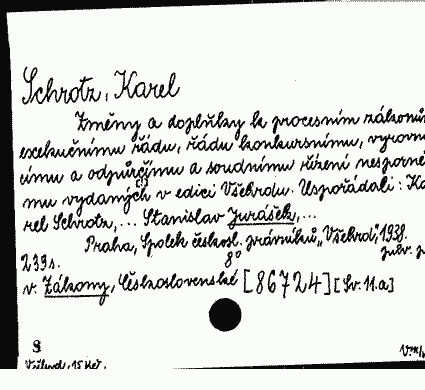 Schrotz, Karel
Změny a doplňky k procesním zákonům
exekučnímu řádu, řádu konkursnímu, vyrovna
címu a odpůrčímu a soudnímu řízení nesporné
mu vydaných v edici Všehrdu. Uspořádali: Ka
rel Schrotz,... Stanislav Jurášek,...
Praha, Spolek českosl. právníků „Všehrd", 1938.
239 s. 8°
v. Zákony, Československé [86724] [Sv. 11.a]
Všehrd, 15 Kč.